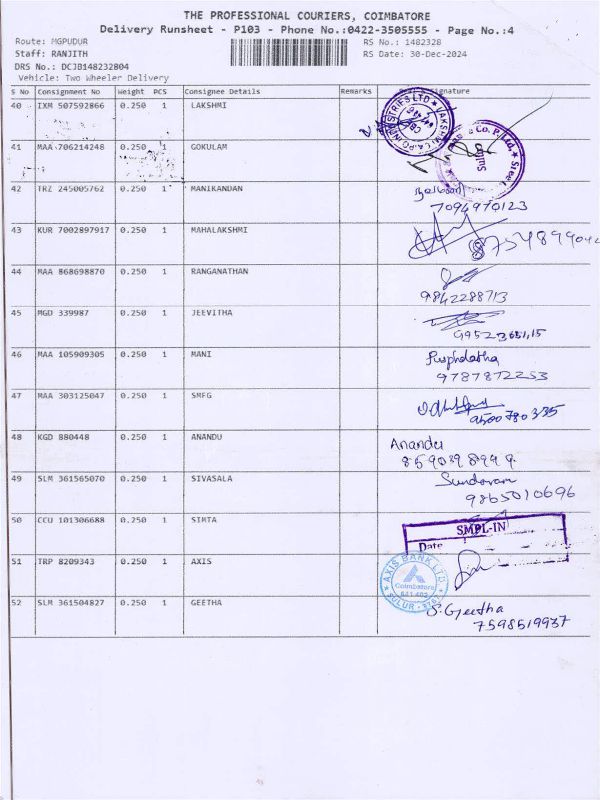 THE PROFESSIONAL COURIERS, COIMBATORE
Delivery Runsheet - P103 - Phone No.:0422-3505555 - Page No.:4
Route: MGPUDUR RS No.: 1482328
Staff: RANJITH RS Date: 30-Dec-2024
DRS No.: DCJB148232804
Vehicle: Two Wheeler Delivery
S No Consignment No Weight PCS Consignee Details Remarks Signature
40 IXM 507592866 0.250 1 LAKSHMI
41 MAA 706214248 0.250 1 GOKULAM
Co. P. Ltd.
Sulur
42 TRZ 245005762 0.250 1 MANIKANDAN
7094970123
43 KUR 7002897917 0.250 1 MAHALAKSHMI
44 MAA 868698870 0.250 1 RANGANATHAN
9842288713
45 MGD 339987 0.250 1 JEEVITHA
46 MAA 105909305 0.250 1 MANI Pusphalatha
9787872253
47 MAA 303125047 0.250 1 SMFG
9500780335
48 KGD 880448 0.250 1 ANANDU Anandu
8590398999
49 SLM 361565070 0.250 1 SIVASALA Sundaram
9865010696
50 CCU 101306688 0.250 1 SIMTA SMPL-IN
Date
51 TRP 8209343 0.250 1 AXIS AXIS BANK LTD
Coimbatore
641 402
SULUR
52 SLM 361504827 0.250 1 GEETHA S. Geetha
7598519937